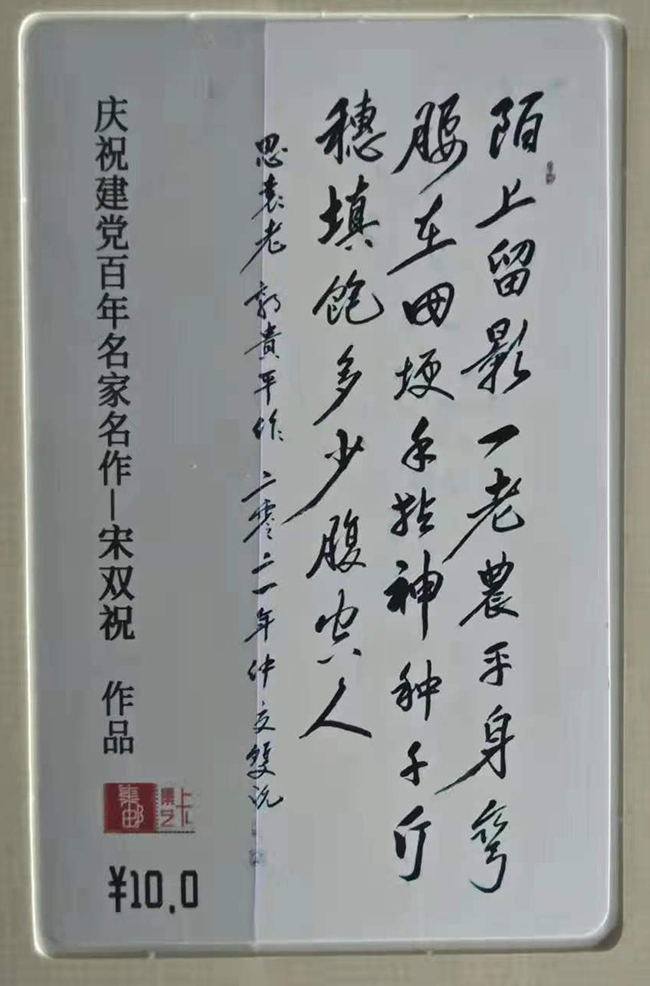 陌上留影一老農平身弯
腰在田埂手拈神种千斤
穗填饱多少腹空人
思袁老 郭貴平作 二零二一年仲夏雙祝
庆祝建党百年名家名作—宋双祝 作品
集邮
¥10.0